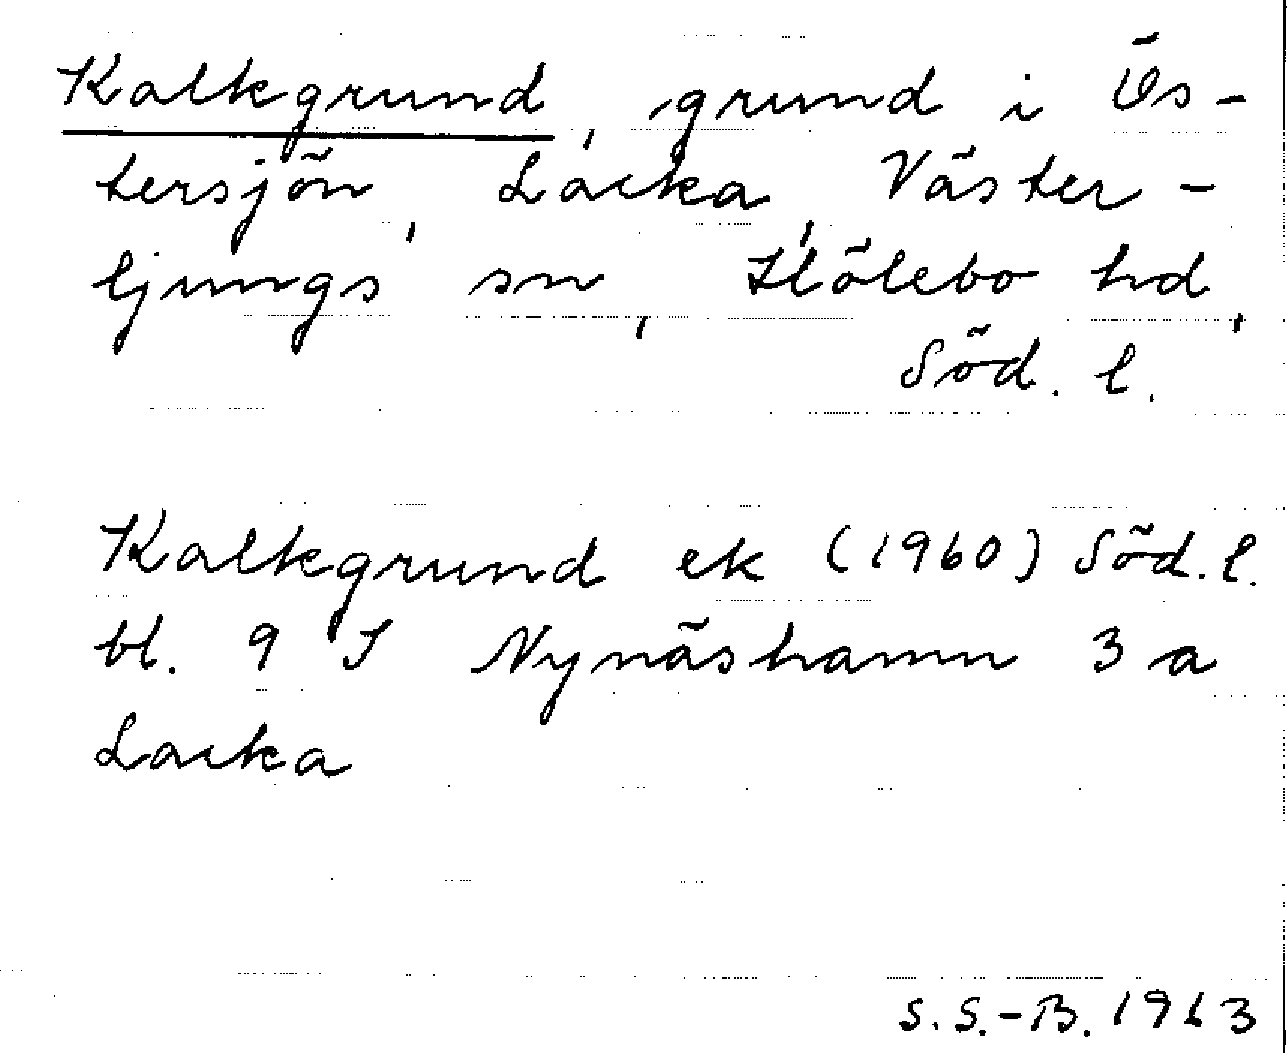 Kalkgrund, grund i Ös-
tersjön, Lacka, Väster-
ljungs sn, Hölebo hd,
Söd. l.
Kalkgrund ek (1960) Söd. l.
bl. 9 I Nynäshamn 3 a
Lacka
S. S.-B. 1963